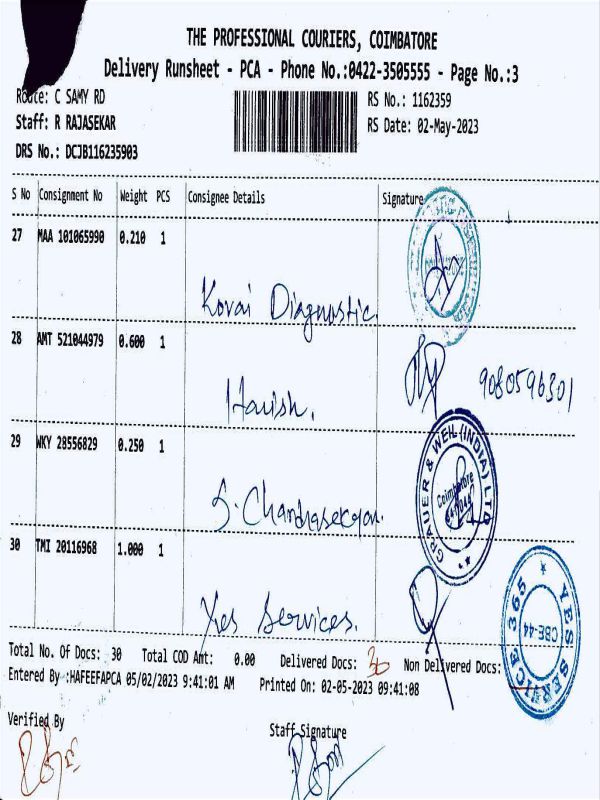 THE PROFESSIONAL COURIERS, COIMBATORE
Delivery Runsheet - PCA - Phone No.:0422-3505555 - Page No.:3
Route: C SAMY RD
RS No.: 1162359
Staff: R RAJASEKAR
RS Date: 02-May-2023
DRS No.: DCJB116235903
S No Consignment No Weight PCS Consignee Details Signature
27 MAA 101065990 0.210 1
Kovai Diagnostic
28 AMT 521044979 0.600 1
9080596301
Harish.
29 WKY 28556829 0.250 1
GRAUER & WEIL (INDIA) LTD
Coimbatore
S. Chandrasekaran.
30 TMI 20116968 1.000 1
YES SERVICE 365
CBE-44
Yes Services.
Total No. Of Docs: 30 Total COD Amt: 0.00 Delivered Docs: 30 Non Delivered Docs:
Entered By :HAFEEFAPCA 05/02/2023 9:41:01 AM Printed On: 02-05-2023 09:41:08
Verified By
Staff Signature